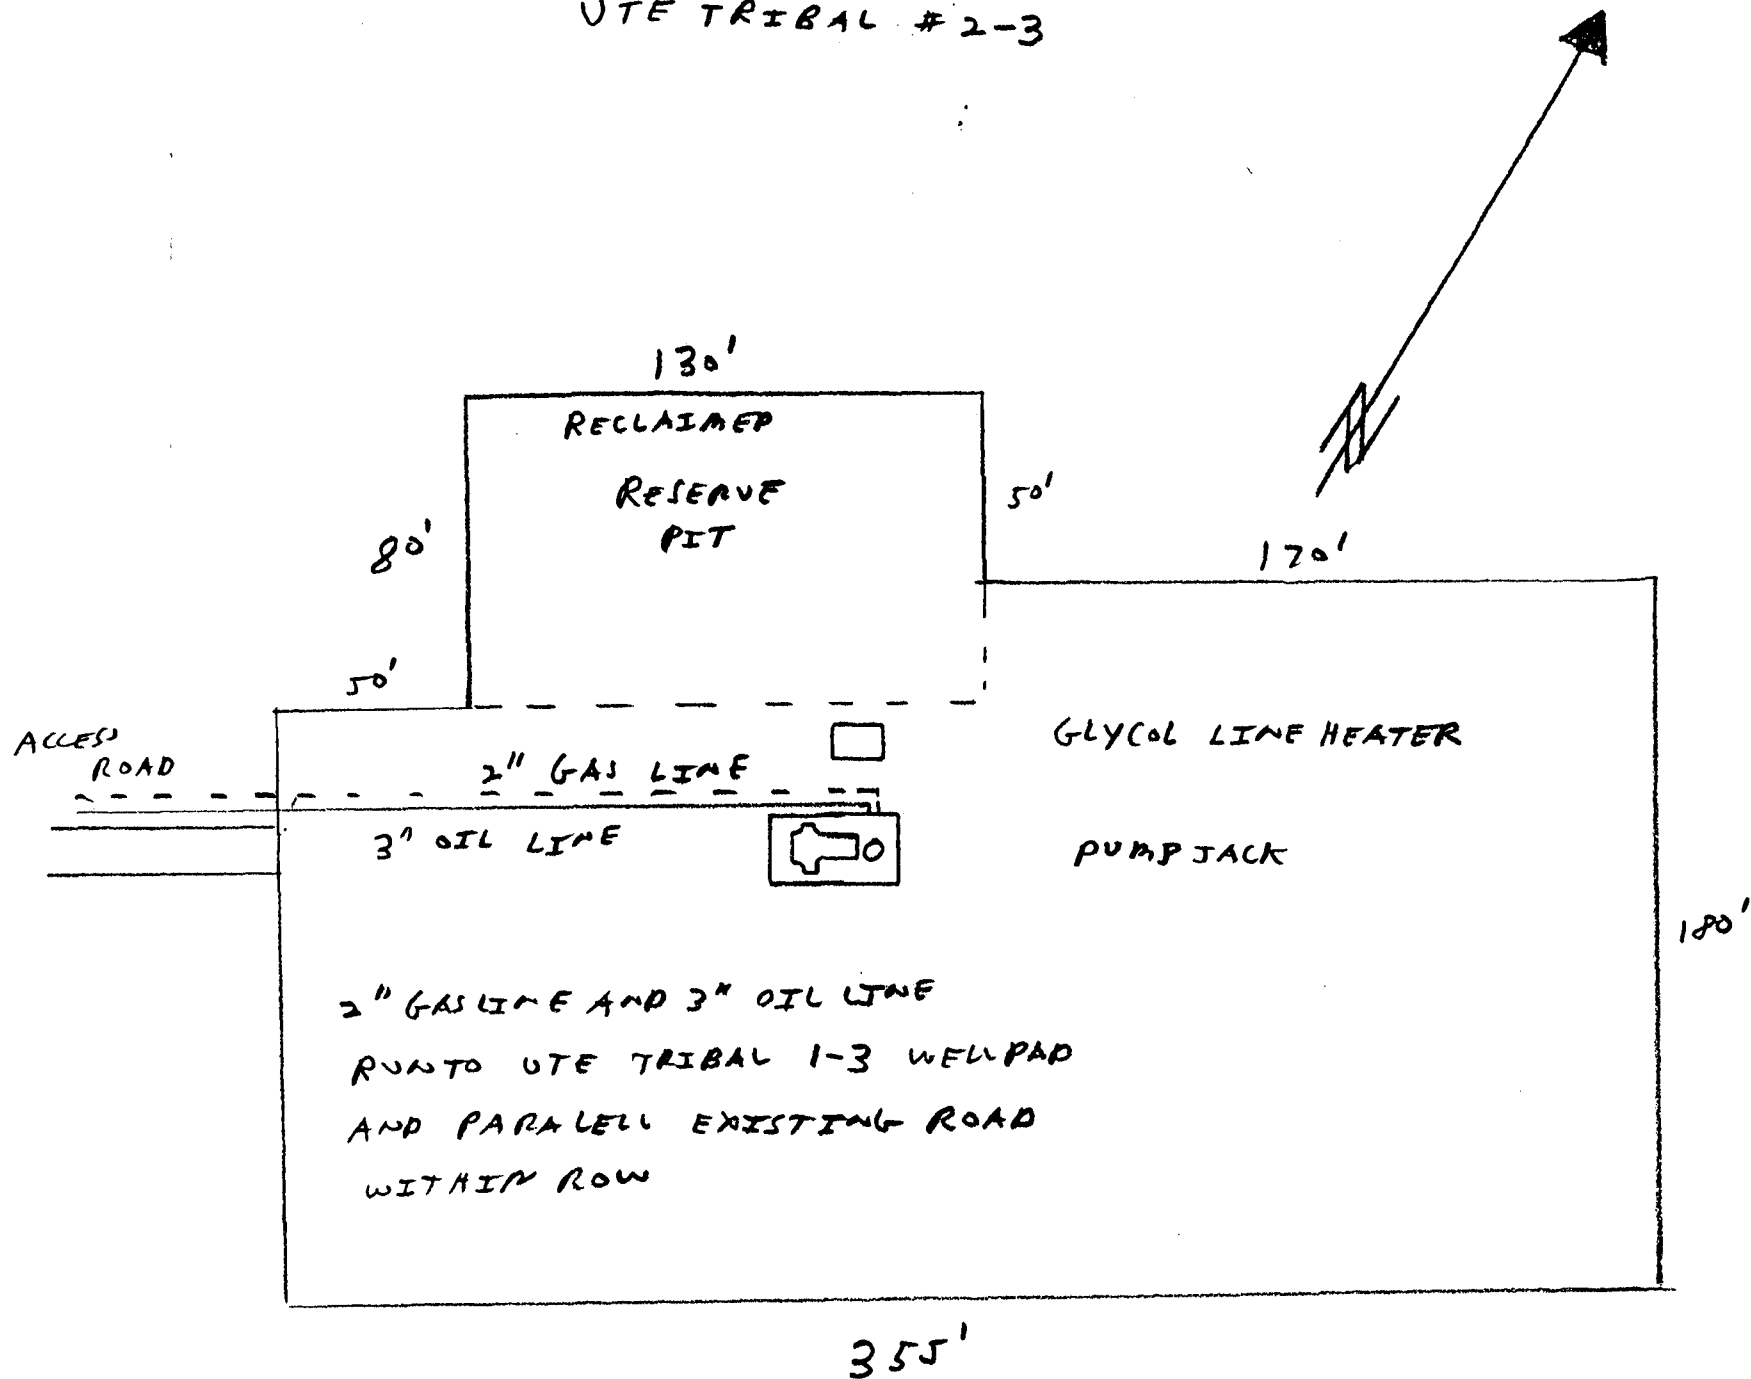 UTE TRIBAL #2-3
130'
RECLAIMED
RESERVE
PIT
80'
50'
170'
50'
ACCESS
ROAD
2" GAS LINE
3" OIL LINE
GLYCOL LINE HEATER
PUMP JACK
180'
2" GAS LINE AND 3" OIL LINE
RUN TO UTE TRIBAL 1-3 WELLPAD
AND PARALELL EXISTING ROAD
WITHIN ROW
355'